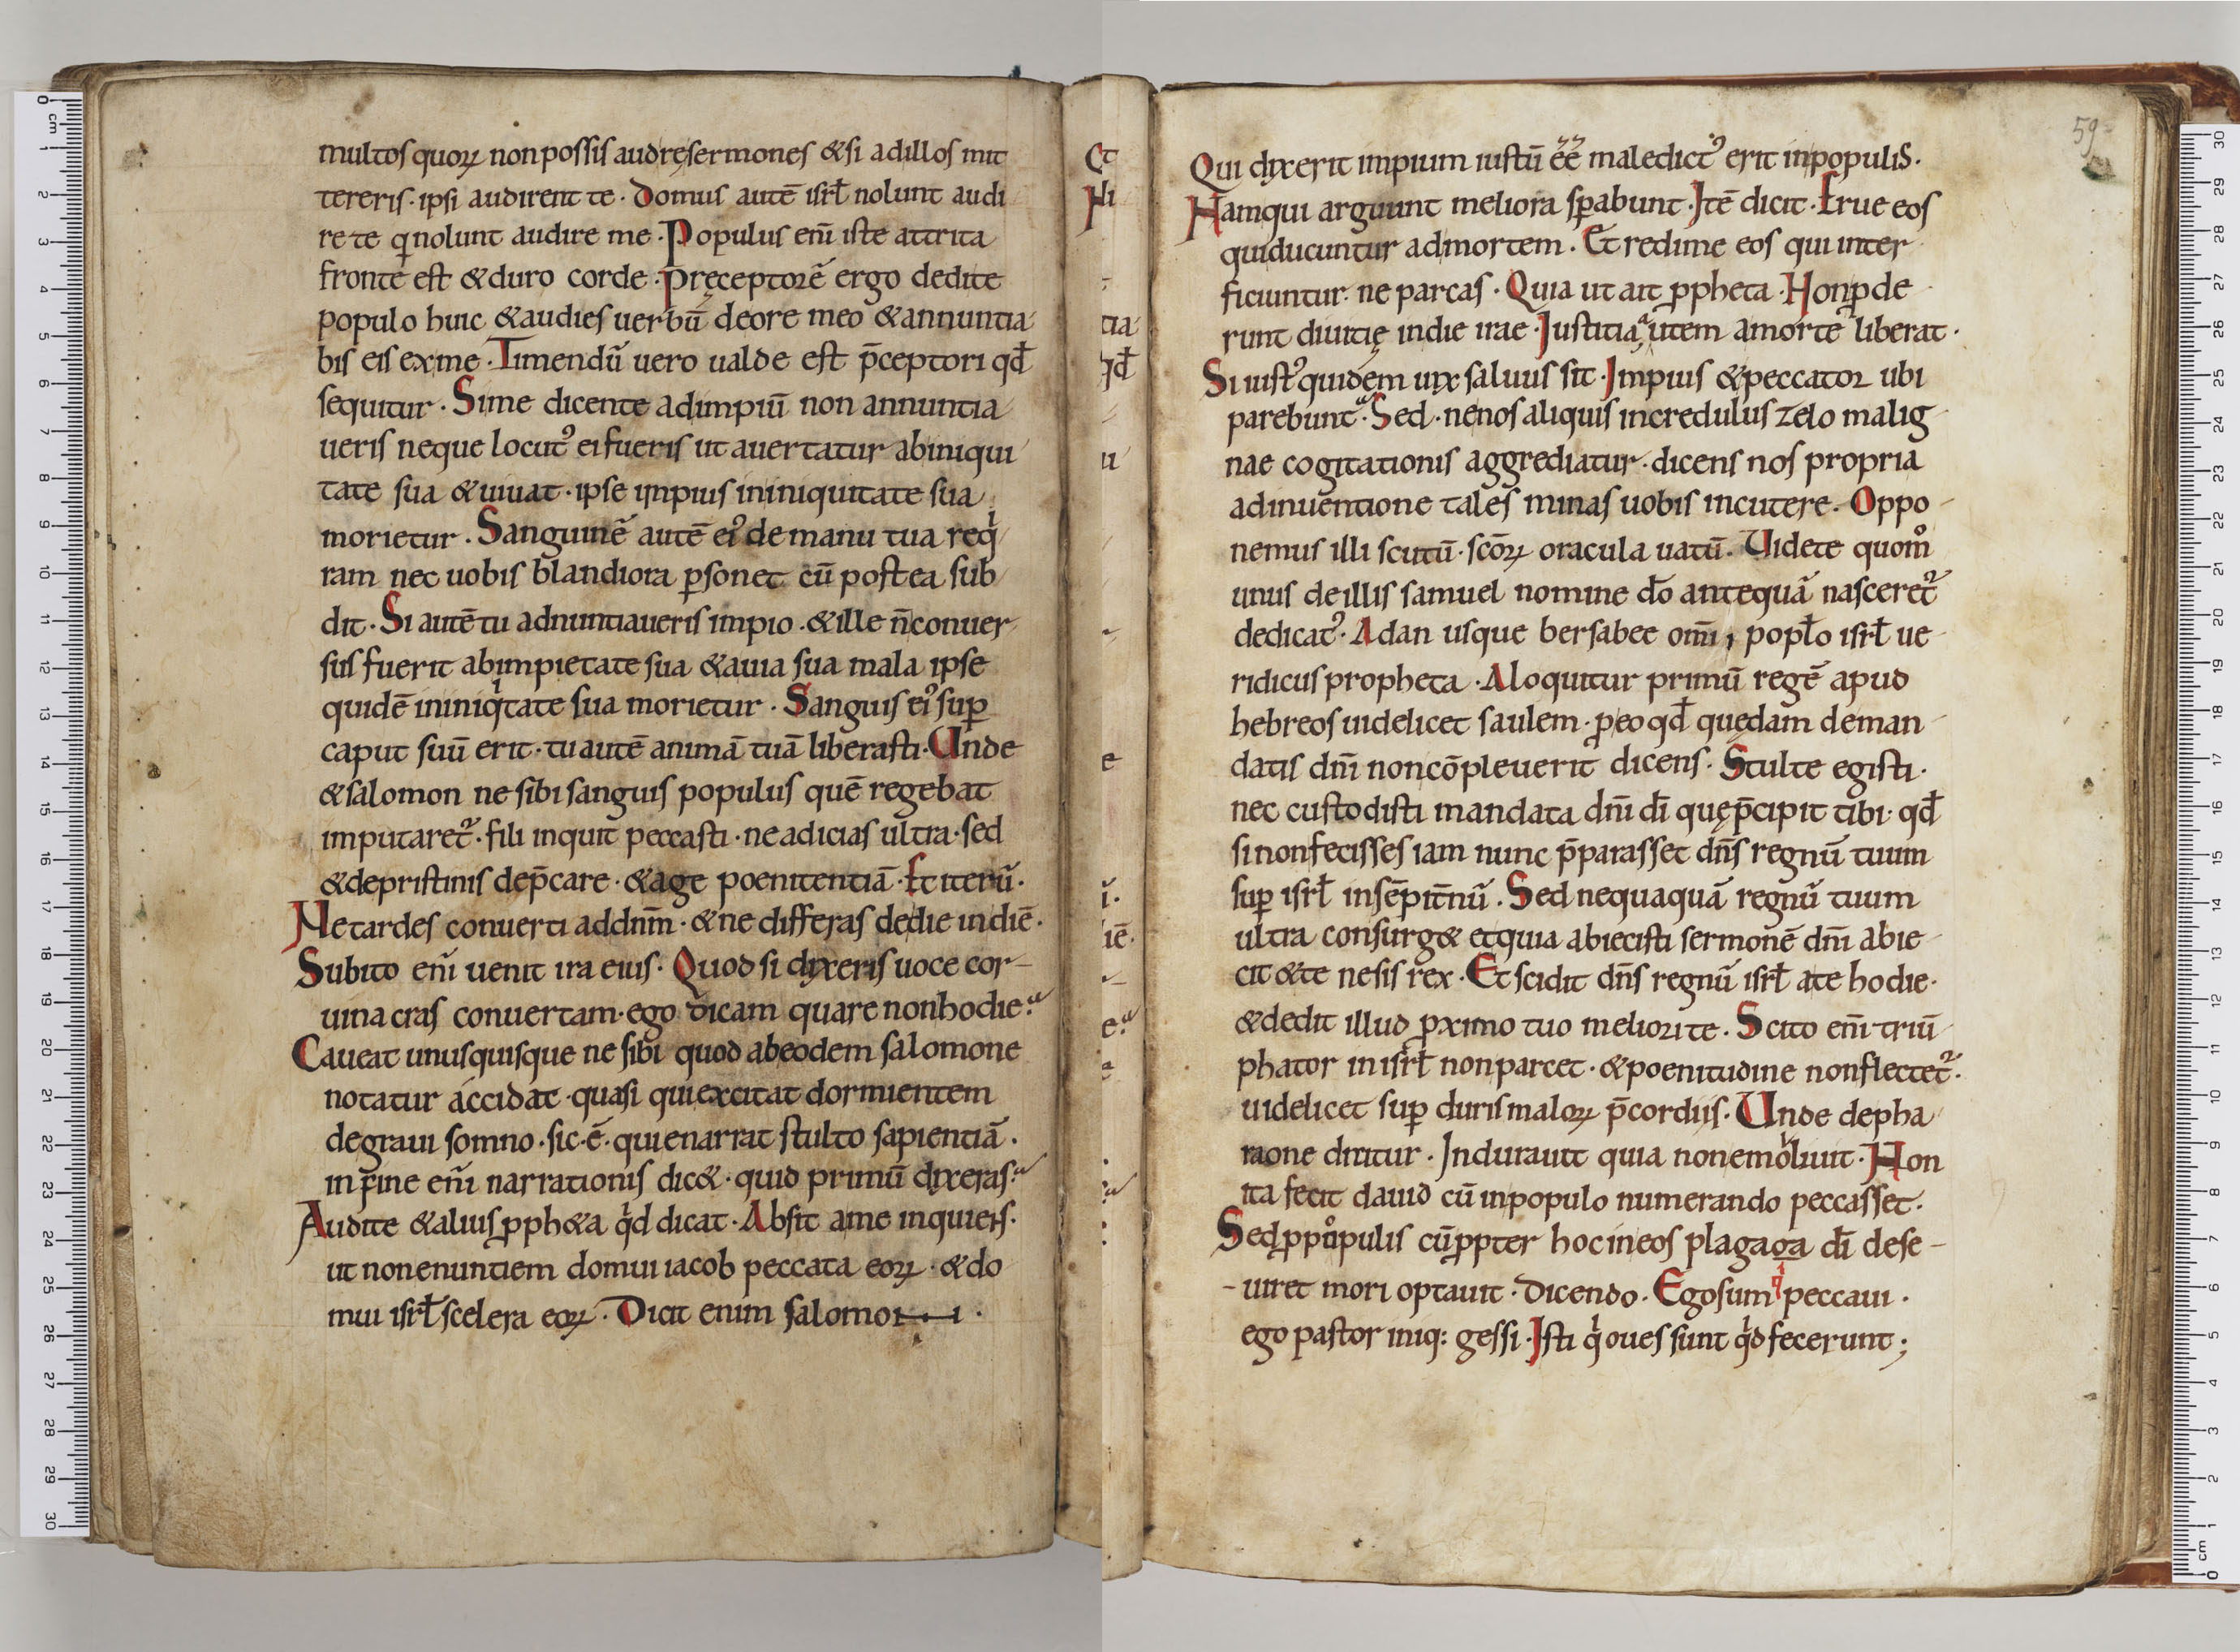 multos quoꝝ non possis audrę sermones & si ad illos mit
tereris · ipsi audirent te · Domus autē isrł nolunt audi
re te q nolunt audire me · Populus enī iste attrita
fronte est & duro corde · pręceptorē ergo dedi te
populo huic & audies uerbū de ore meo & annuntia
bis eis ex me · Timendū uero ualde est p̄ceptori qđ
sequitur · Si me dicente ad impiū non annuntia
ueris neque locutꝰ ei fueris ut auertatur ab iniqui
tate sua & uiuat · ipse impius in iniquitate sua
morietur · Sanguinē autē eiꝰ de manu tua req
ram nec uobis blandiora ꝑsonet cū postea sub
dit · Si autē tu adnuntiaueris impio · & ille n̄ conuer
sus fuerit ab impietate sua & a uia sua mala ipse
quidē in iniqtate sua morietur · Sanguis eiꝰ suꝑ
caput suū erit · tu autē animā tuā liberasti · Unde
& salomon ne sibi sanguis populus quē regebat
imputaret᷑ · fili inquit peccasti · ne adicias ultra · sed
& de pristinis dep̄care · & age poenitentiā · Et iterū ·
Ne tardes conuerti ad dn̄m · & ne differas de die in diē ·
Subito enī uenit ira eius · Quod si dixeris uoce cor-
uina cras conuertam · ego dicam quare non hodie?
Caueat unusquisque ne sibi quod ab eodem salomone
notatur accidat · quasi qui excitat dormientem
de graui somno · sic · ē · qui enarrat stulto sapientiā ·
in fine enī narrationis dic& · quid primū dixeras?
Audite & alius ꝓph&a qd dicat · Absit a me inquiens ·
ut non enuntiem domui iacob peccata eoꝝ · & do
mui isrł scelera eoꝝ · Dicit enim salomon ·
59
Qui dixerit impium iustū ēē maledictꝰ erit in populis ·
Nam qui arguunt meliora sꝑabunt · Itē dicit · Erue eos
qui ducuntur ad mortem · Et redime eos qui inter
ficiuntur · ne parcas · Quia ut ait ꝓpheta · Non ꝓde
runt diuitię in die irae · Iustitia autem a morte liberat ·
Si iustꝰ quidem uix saluus sit · Impius & peccator ubi
parebunt? Sed · ne nos aliquis incredulus zelo malig
nae cogitationis aggrediatur · dicens nos propria
adinuentione tales minas uobis incutere · Oppo
nemus illi scutū · scōꝝ oracula uatū · Uidete quom̊
unus de illis samuel nomine dō antequā nasceret᷑
dedicatꝰ · A dan usque bersabee omī popłō isrł ue
ridicus propheta · Aloquitur primū regē apud
hebreos uidelicet saulem · p eo qđ quędam de man
datis dn̄i non cōpleuerit dicens · Stulte egisti ·
nec custodisti mandata dn̄i dī quę p̄cipit tibi · qđ
si non fecisses iam nunc p̄parasset dn̄s regnū tuum
suꝑ isrł in sēpit̄nū · Sed nequaquā regnū tuum
ultra consurg& et quia abiecisti sermonē dn̄i abie
cit & te ne sis rex · Et scidit dn̄s regnū isrł a te hodie ·
& dedit illud ꝓximo tuo meliori te · Scito enī triū
phator in isrł non parcet · & poenitudine non flectet᷑ ·
uidelicet suꝑ duris maloꝝ p̄cordiis · Unde de pha
raone dicitur · Indurauit quia non emolliuit · Non
ita fecit dauid cū in populo numerando peccasset ·
Sed ꝓ populis cū ꝓpter hoc in eos plaga dī dese-
-uiret mori optauit · dicendo · Ego sum q peccaui ·
ego pastor iniq: gessi · Isti q oues sunt qd fecerunt ;